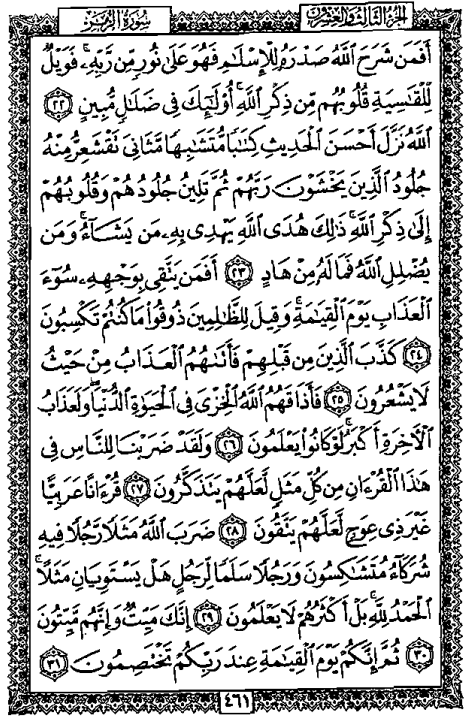 الجزء الثالث والعشرون
سورة الزمر
أَفَمَن شَرَحَ اللَّهُ صَدْرَهُ لِلْإِسْلَامِ فَهُوَ عَلَىٰ نُورٍ مِّن رَّبِّهِ ۚ فَوَيْلٌ
لِّلْقَاسِيَةِ قُلُوبُهُم مِّن ذِكْرِ اللَّهِ ۚ أُولَٰئِكَ فِي ضَلَالٍ مُّبِينٍ ٢٢
اللَّهُ نَزَّلَ أَحْسَنَ الْحَدِيثِ كِتَابًا مُّتَشَابِهًا مَّثَانِيَ تَقْشَعِرُّ مِنْهُ
جُلُودُ الَّذِينَ يَخْشَوْنَ رَبَّهُمْ ثُمَّ تَلِينُ جُلُودُهُمْ وَقُلُوبُهُمْ
إِلَىٰ ذِكْرِ اللَّهِ ۚ ذَٰلِكَ هُدَى اللَّهِ يَهْدِي بِهِ مَن يَشَاءُ ۚ وَمَن
يُضْلِلِ اللَّهُ فَمَا لَهُ مِنْ هَادٍ ٢٣ أَفَمَن يَتَّقِي بِوَجْهِهِ سُوءَ
الْعَذَابِ يَوْمَ الْقِيَامَةِ ۚ وَقِيلَ لِلظَّالِمِينَ ذُوقُوا مَا كُنتُمْ تَكْسِبُونَ
٢٤ كَذَّبَ الَّذِينَ مِن قَبْلِهِمْ فَأَتَاهُمُ الْعَذَابُ مِنْ حَيْثُ
لَا يَشْعُرُونَ ٢٥ فَأَذَاقَهُمُ اللَّهُ الْخِزْيَ فِي الْحَيَاةِ الدُّنْيَا ۖ وَلَعَذَابُ
الْآخِرَةِ أَكْبَرُ ۚ لَوْ كَانُوا يَعْلَمُونَ ٢٦ وَلَقَدْ ضَرَبْنَا لِلنَّاسِ فِي
هَٰذَا الْقُرْءَانِ مِن كُلِّ مَثَلٍ لَّعَلَّهُمْ يَتَذَكَّرُونَ ٢٧ قُرْءَانًا عَرَبِيًّا
غَيْرَ ذِي عِوَجٍ لَّعَلَّهُمْ يَتَّقُونَ ٢٨ ضَرَبَ اللَّهُ مَثَلًا رَّجُلًا فِيهِ
شُرَكَاءُ مُتَشَاكِسُونَ وَرَجُلًا سَلَمًا لِّرَجُلٍ هَلْ يَسْتَوِيَانِ مَثَلًا ۚ
الْحَمْدُ لِلَّهِ ۚ بَلْ أَكْثَرُهُمْ لَا يَعْلَمُونَ ٢٩ إِنَّكَ مَيِّتٌ وَإِنَّهُم مَّيِّتُونَ
٣٠ ثُمَّ إِنَّكُمْ يَوْمَ الْقِيَامَةِ عِندَ رَبِّكُمْ تَخْتَصِمُونَ ٣١
٤٦١